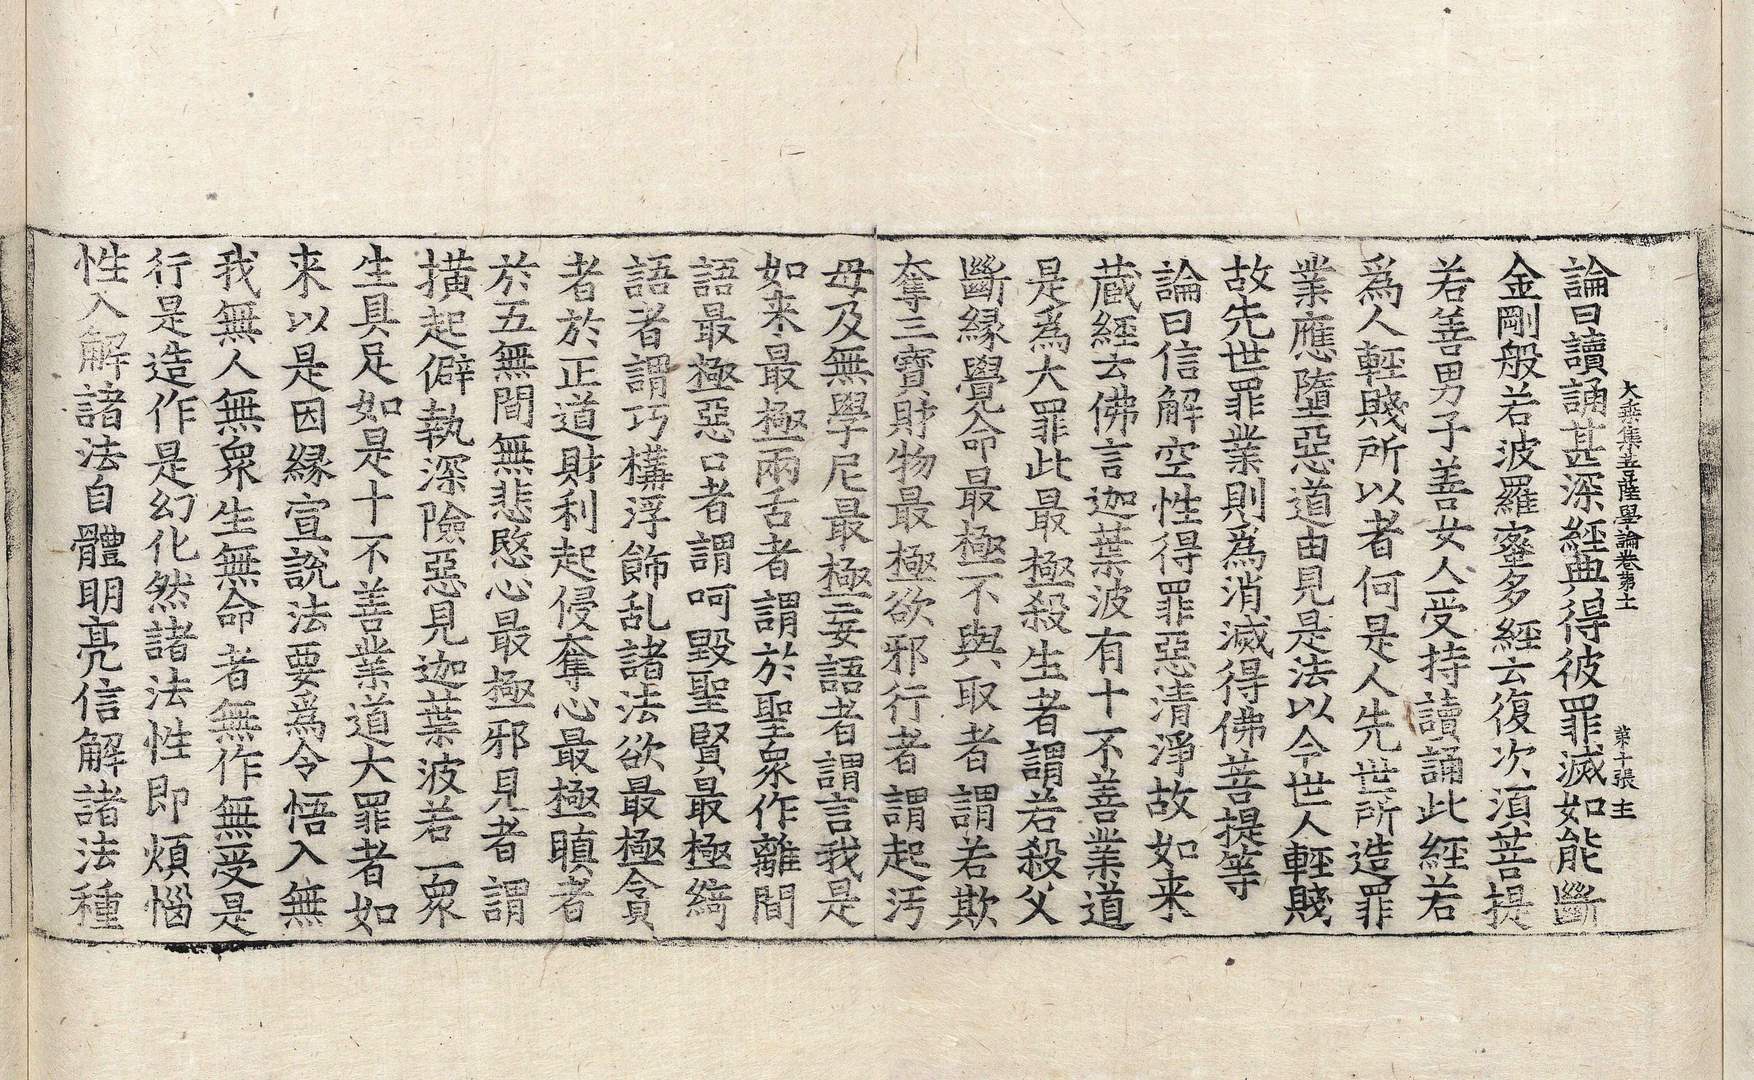 大乘集菩薩學論卷第十一　第十張　主
論曰讀誦甚深經典得彼罪滅如能斷
金剛般若波羅蜜多經云復次須菩提
若善男子善女人受持讀誦此經若
爲人輕賤所以者何是人先世所造罪
業應墮惡道由見是法以今世人輕賤
故先世罪業則爲消滅得佛菩提等
論曰信解空性得罪惡清淨故如来
藏經云佛言迦葉波有十不善業道
是爲大罪此最極殺生者謂若殺父
斷緣覺命最極不與取者謂若欺
奪三寶財物最極欲邪行者謂起汚
母及無學尼最極妄語者謂言我是
如来最極兩舌者謂於聖衆作離間
語最極惡口者謂呵毀聖賢最極綺
語者謂巧構浮飾乱諸法欲最極貪
者於正道財利起侵奪心最極瞋者
於五無間無悲愍心最極邪見者謂
撗起僻執深險惡見迦葉波若一衆
生具足如是十不善業道大罪者如
来以是因緣宣說法要爲令悟入無
我無人無衆生無命者無作無受是
行是造作是幻化然諸法性即煩惱
性入解諸法自體明亮信解諸法種